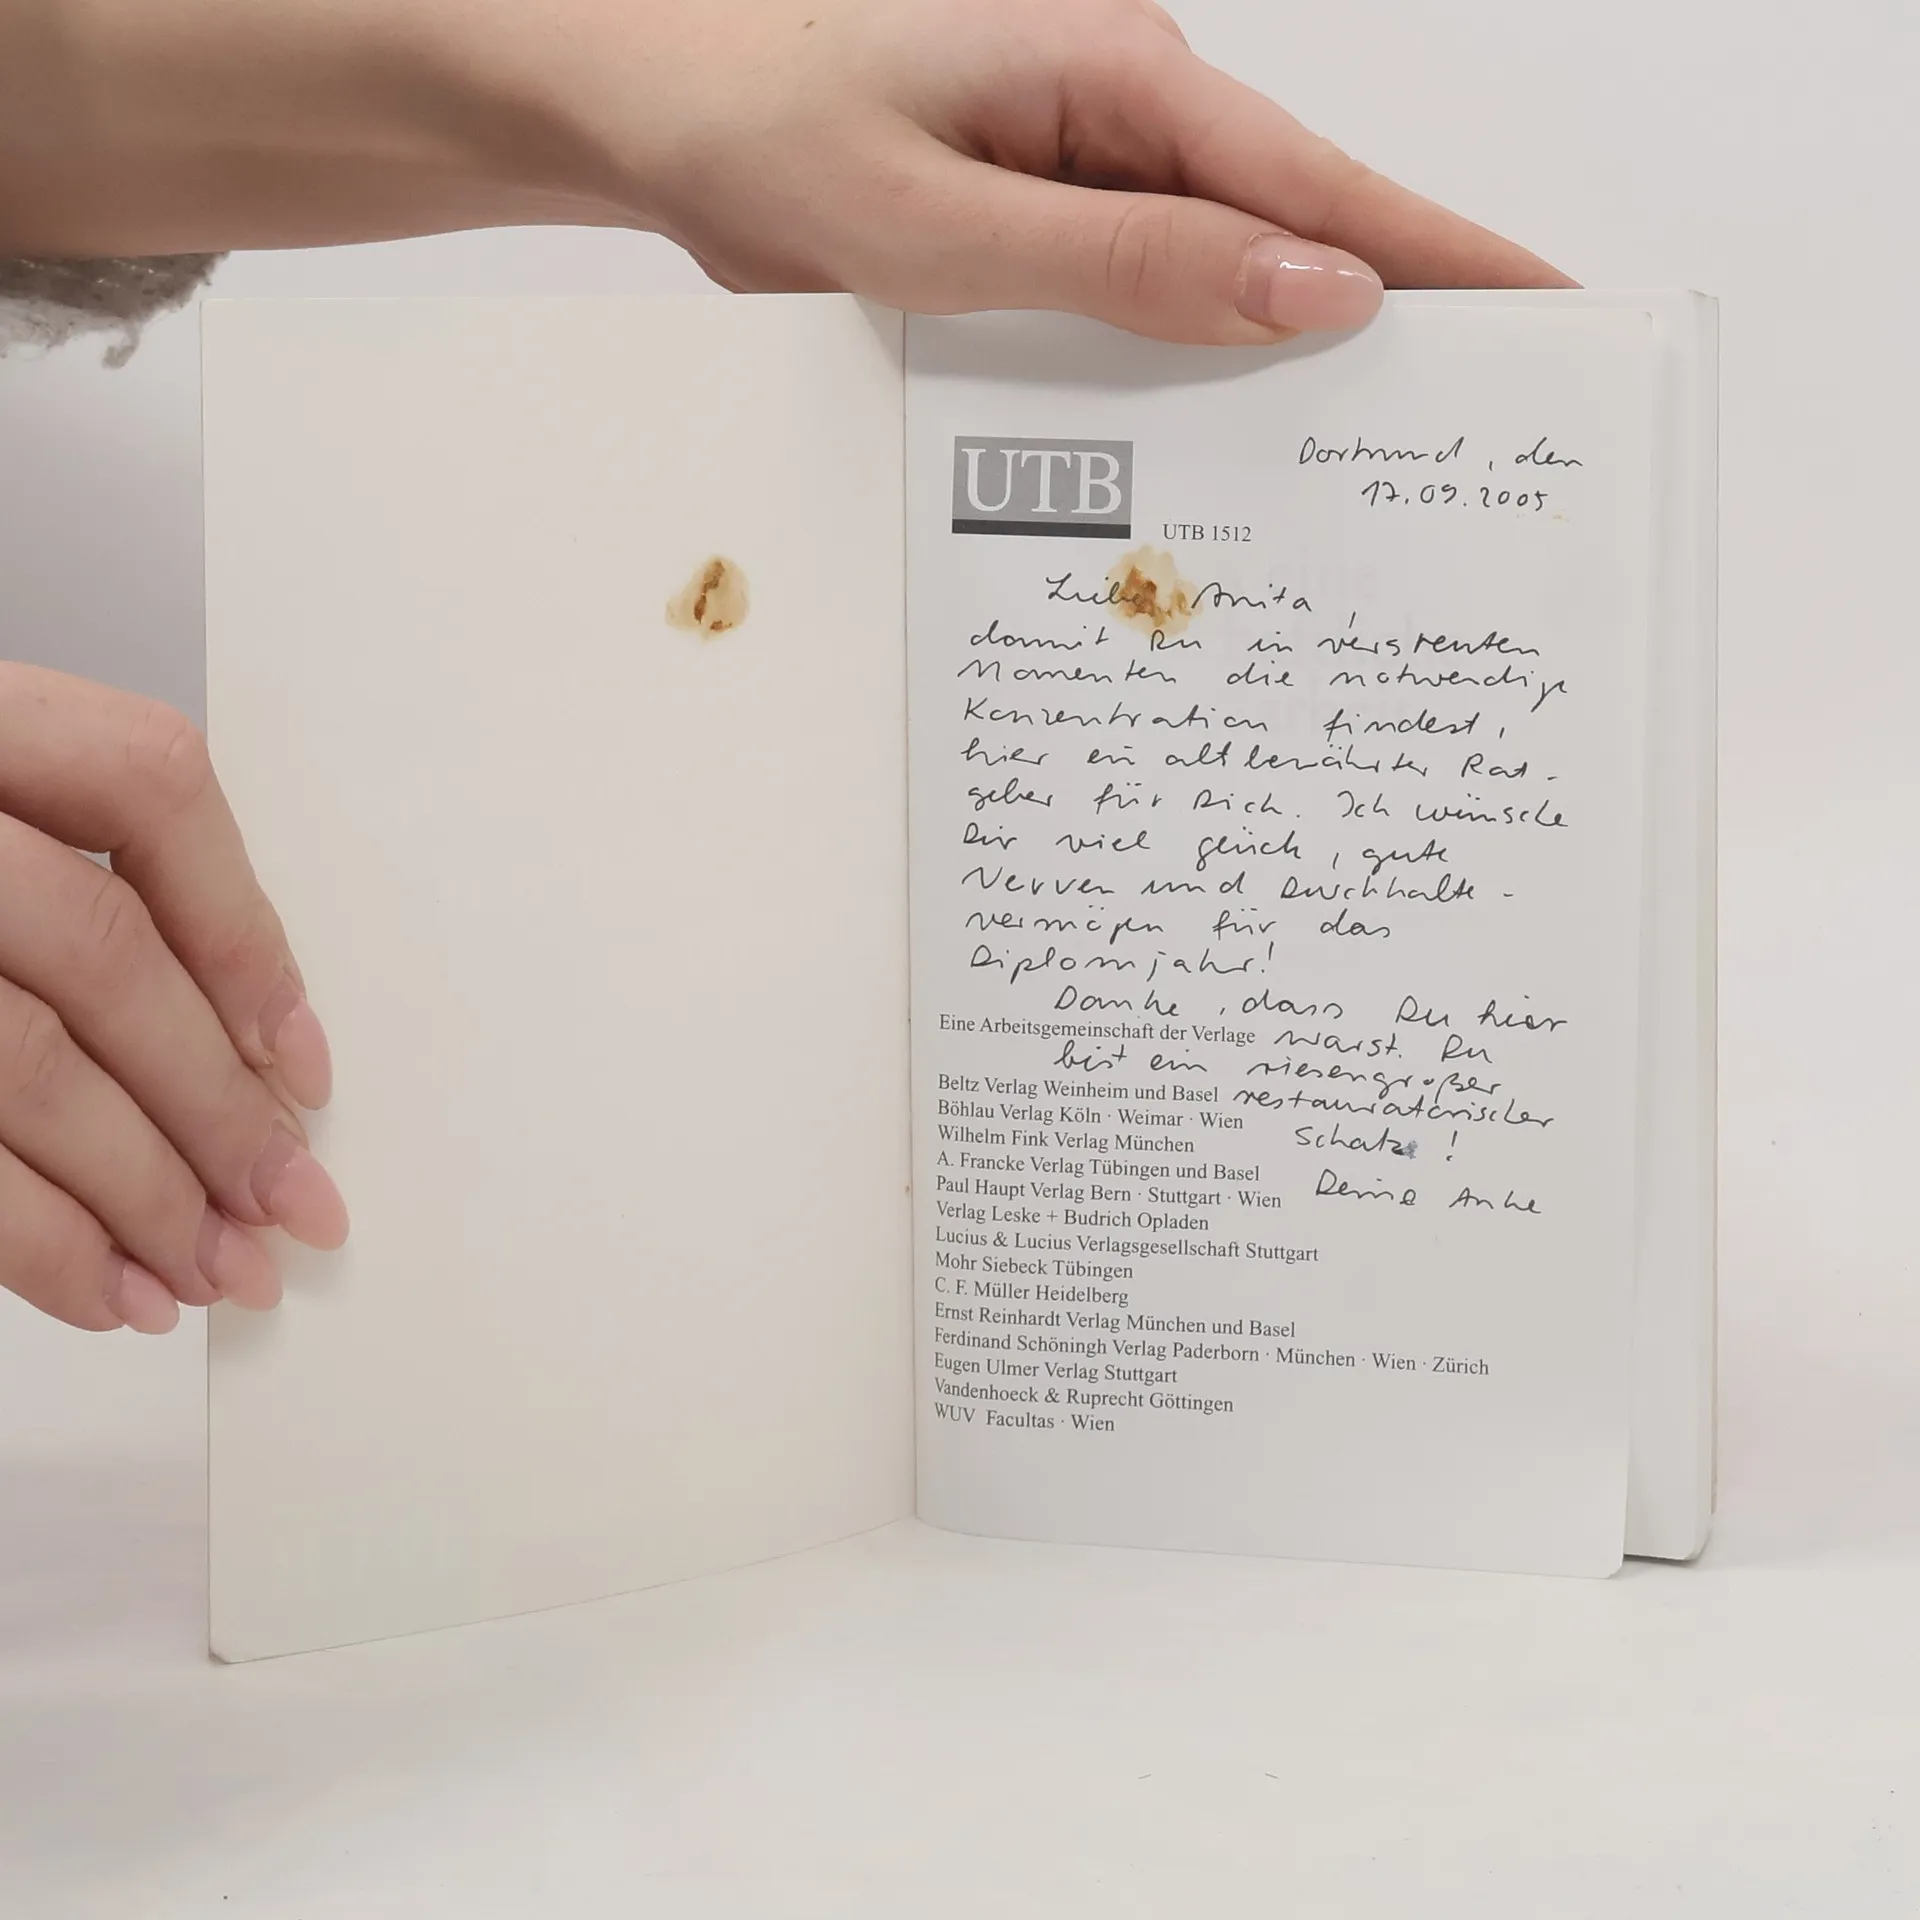 UTB
UTB 1512
Dortmund, den
17.09.2005
Liebe Anita,
damit Du in verstreuten
Momenten die notwendige
Konzentration findest,
hier ein altbewährter Rat-
geber für Dich. Ich wünsche
Dir viel Glück, gute
Nerven und Durchhalte-
vermögen für das
Diplomjahr!
Danke, dass Du hier
warst. Du
bist ein riesengroßer
restauratorischer
Schatz!
Deine Anke
Eine Arbeitsgemeinschaft der Verlage
Beltz Verlag Weinheim und Basel
Böhlau Verlag Köln · Weimar · Wien
Wilhelm Fink Verlag München
A. Francke Verlag Tübingen und Basel
Paul Haupt Verlag Bern · Stuttgart · Wien
Verlag Leske + Budrich Opladen
Lucius & Lucius Verlagsgesellschaft Stuttgart
Mohr Siebeck Tübingen
C. F. Müller Heidelberg
Ernst Reinhardt Verlag München und Basel
Ferdinand Schöningh Verlag Paderborn · München · Wien · Zürich
Eugen Ulmer Verlag Stuttgart
Vandenhoeck & Ruprecht Göttingen
WUV Facultas · Wien